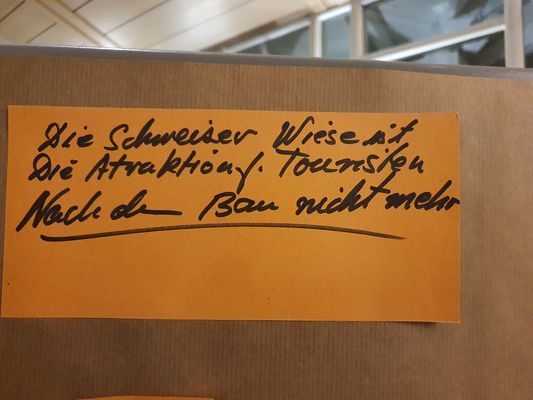 Die Schweiser Wiese ist
Die Atraktion f. Touristen
Nach dem Bau nicht mehr